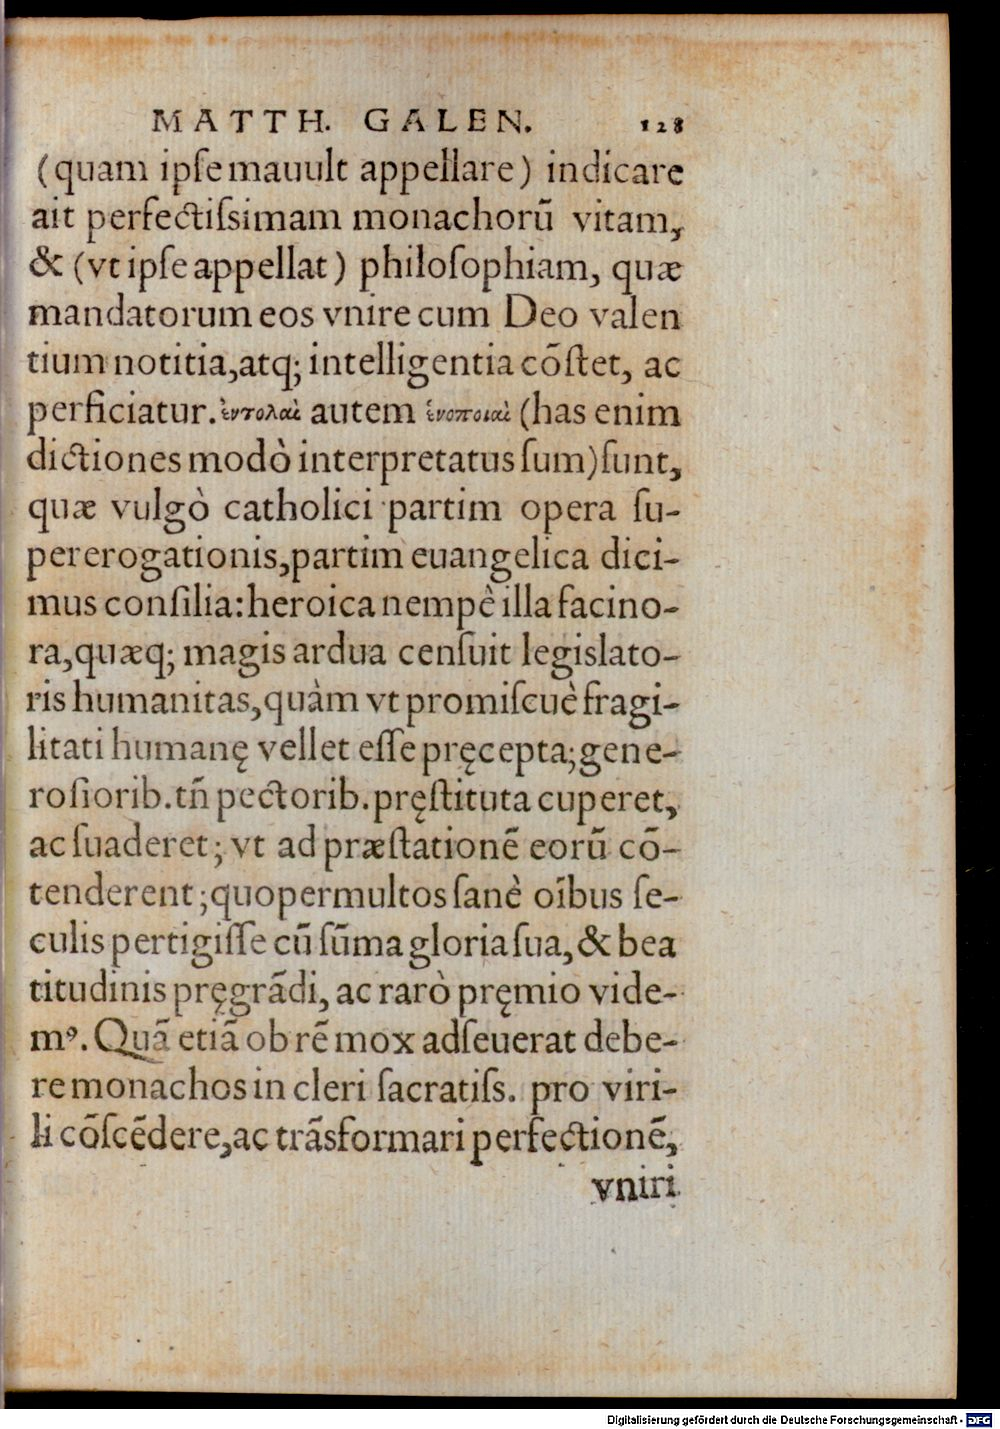 MATTH. GALEN. 128
(quam ipſe mauult appellare) indicare
ait perfectiſsimam monachorũ vitam,
& (vt ipſe appellat) philoſophiam, quæ
mandatorum eos vnire cum Deo valen
tium notitia, atq; intelligentia cõſtet, ac
perficiatur. ἐντολαὶ autem ἑνοποιαὶ (has enim
dictiones modò interpretatus ſum) ſunt,
quæ vulgò catholici partim opera ſu-
pererogationis, partim euangelica dici-
mus conſilia: heroica nempè illa facino-
ra, quæq; magis ardua cenſuit legislato-
ris humanitas, quàm vt promiſcuè fragi-
litati humanę vellet eſſe pręcepta; gene-
roſiorib. tñ pectorib. pręſtituta cuperet,
ac ſuaderet; vt ad præſtationẽ eorũ cõ-
tenderent; quo permultos ſanè oĩbus ſe-
culis pertigiſſe cũ ſũma gloria ſua, & bea
titudinis pręgrãdi, ac rarò pręmio vide-
mꝰ. Quã etiã ob rẽ mox adſeuerat debe-
re monachos in cleri ſacratiſs. pro viri-
li cõſcẽdere, ac trãsformari perfectionẽ,
vniri
Digitalisierung gefördert durch die Deutsche Forschungsgemeinschaft - DFG